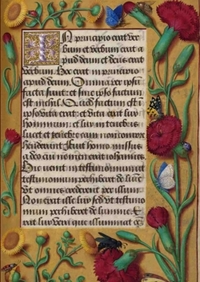 In principio erat ver
bum et verbum erat a
pud deum et deus erat
verbum. Hoc erat in principio
apud deum. Omnia per ipsum
facta sunt: et sine ipso factum
est nichil. Quod factum est
in ipso vita erat: et vita erat lux
hominum: et lux in tenebris
lucet et tenebre eam non compre
henderunt. Fuit homo missus
a deo cui nomen erat iohannes.
Hic venit in testimonium
ut testimonium perhiberet de lumine
Ut omnes crederent per illum.
Non erat ille lux sed ut testimo
nium perhiberet de lumine.
Erat lux vera que illuminat